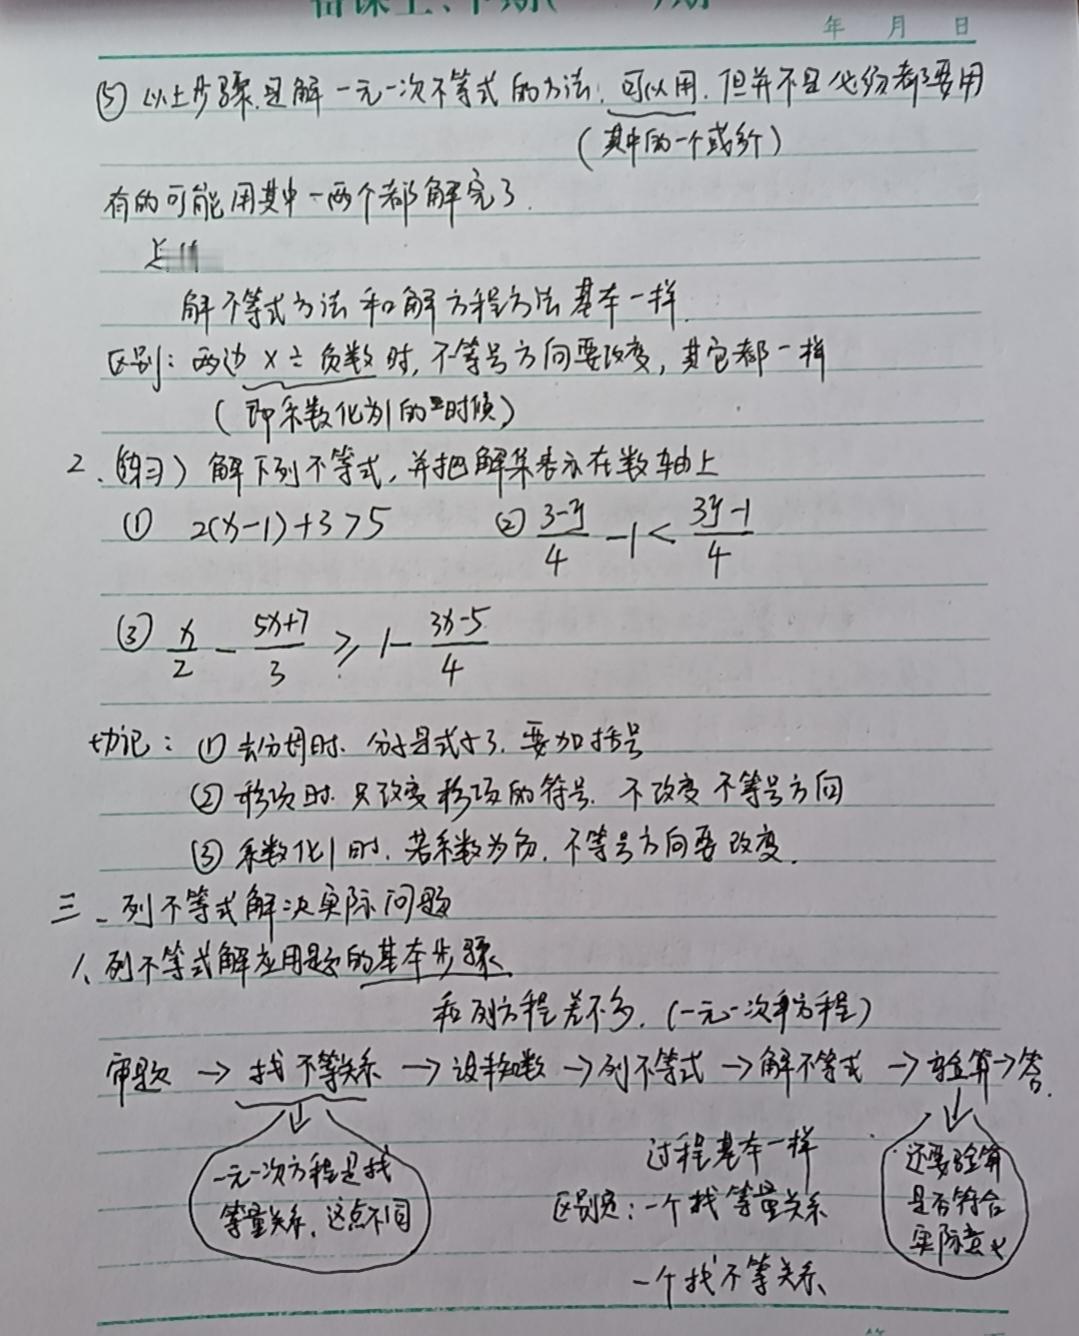 年 月 日
(5) 以上步骤,是解一元一次不等式的方法,可以用,但并不是必须都要用
(其中的一个或多个)
有的可能用其中一两个都解完了.
解不等式方法和解方程方法基本一样.
区别:两边×÷负数时,不等号方向要改变,其它都一样
(即系数化为1的时候)
2、(练习)解下列不等式,并把解集表示在数轴上
(1) 2(x-1)+3>5 (2) \frac{3-y}{4}-1<\frac{3y-1}{4}
(3) \frac{x}{2}-\frac{5x+7}{3}≥1-\frac{3x-5}{4}
切记:(1) 去分母时,分子是式子,要加括号
(2) 移项时,只改变移项的符号,不改变不等号方向
(3) 系数化1时,若系数为负,不等号方向要改变.
三、列不等式解决实际问题
1、列不等式解应用题的基本步骤
和列方程差不多.(一元一次方程)
审题→找不等关系→设未知数→列不等式→解不等式→验算→答.
一元一次方程是找
等量关系,这点不同
过程基本一样
区别是:一个找等量关系
一个找不等关系
还要验算
是否符合
实际意义